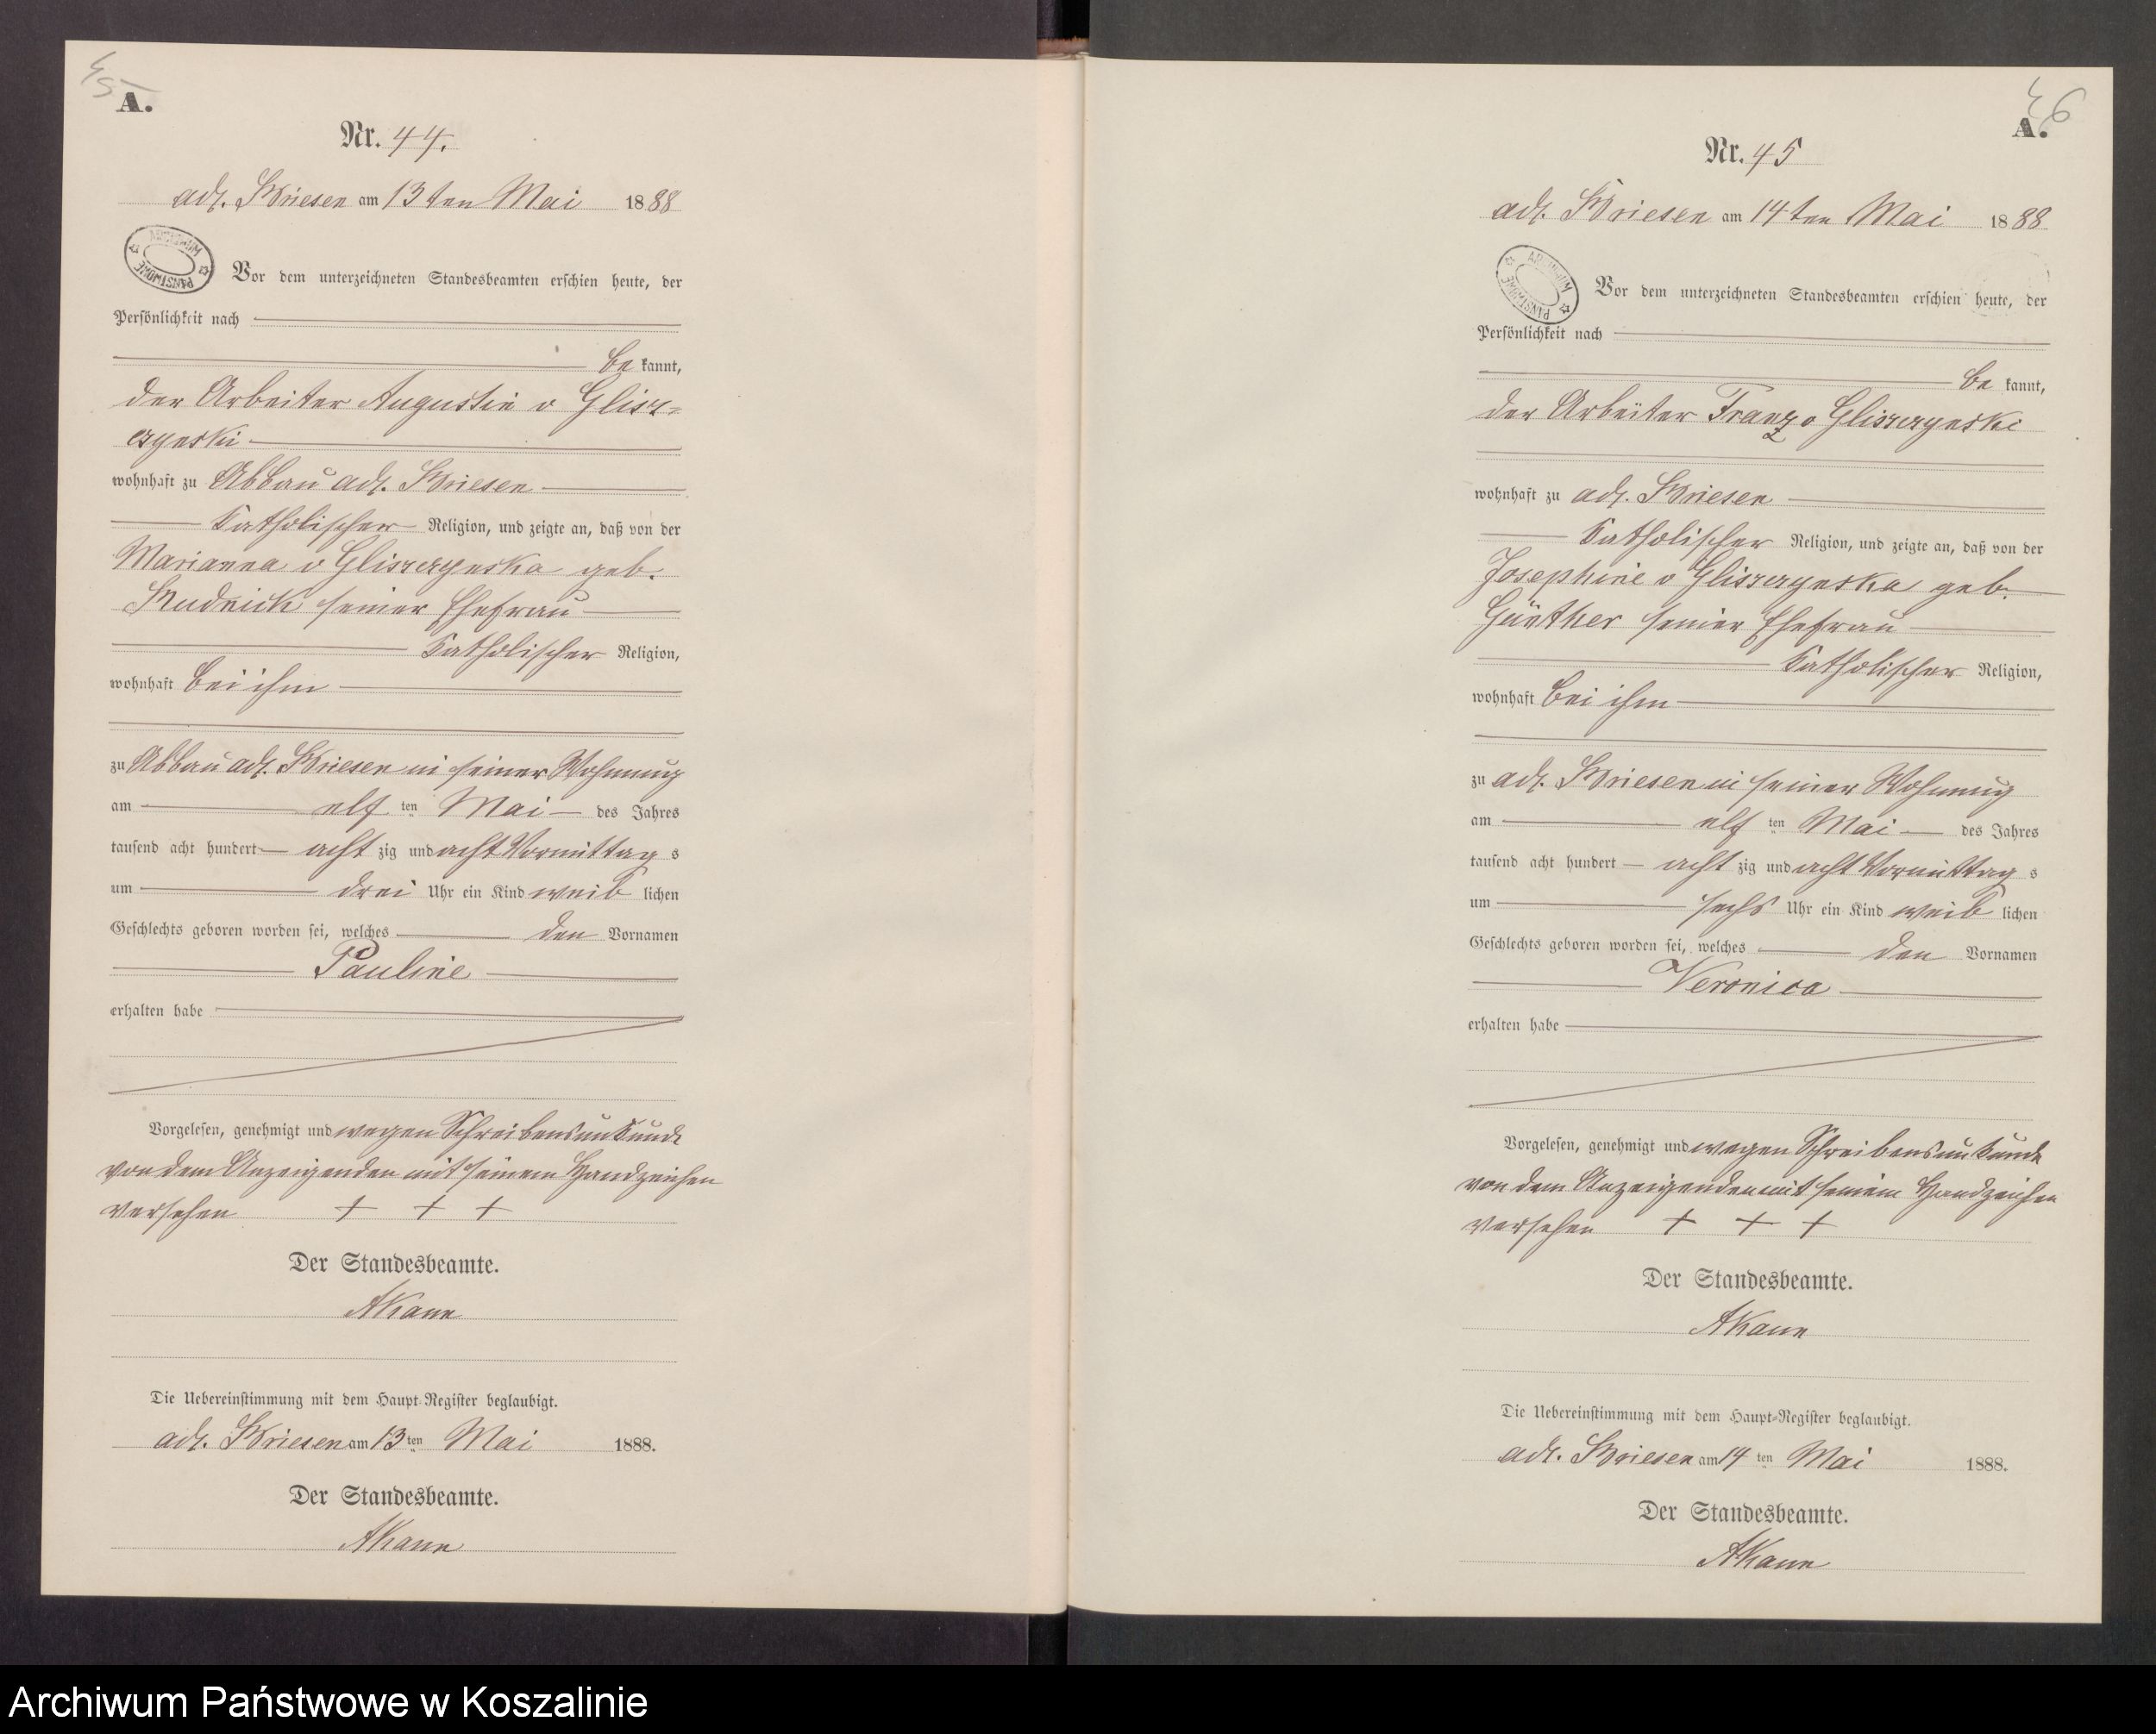 45
A.
Nr. 44.
adl. Briesen am 13 ten Mai 1888
ARCHIWUM PAŃSTWOWE
Vor dem unterzeichneten Standesbeamten erschien heute, der
Persönlichkeit nach
be kannt,
der Arbeiter Augustin v Glisz=
czynski
wohnhaft zu Abbau adl. Briesen
katholischer Religion, und zeigte an, daß von der
Marianna v Gliszczynska geb.
Rudnick seiner Ehefrau
katholischer Religion,
wohnhaft bei ihm
zu Abbau adl. Briesen in seiner Wohnung
am elf ten Mai des Jahres
tausend acht hundert acht zig und acht Vormittag s
um drei Uhr ein Kind weib lichen
Geschlechts geboren worden sei, welches den Vornamen
Pauline
erhalten habe
Vorgelesen, genehmigt und wegen Schreibensunkunde
von dem Anzeigenden mit seinem Handzeichen
versehen + + +
Der Standesbeamte.
AKann
Die Uebereinstimmung mit dem Haupt-Register beglaubigt.
adl. Briesen am 13 ten Mai 1888.
Der Standesbeamte.
AKann
46
A.
Nr. 45
adl. Briesen am 14 ten Mai 1888
ARCHIWUM PAŃSTWOWE
Vor dem unterzeichneten Standesbeamten erschien heute, der
Persönlichkeit nach
be kannt,
der Arbeiter Franz v Gliszczynski
wohnhaft zu adl. Briesen
katholischer Religion, und zeigte an, daß von der
Josephine v Gliszczynska geb.
Günther seiner Ehefrau
katholischer Religion,
wohnhaft bei ihm
zu adl. Briesen in seiner Wohnung
am elf ten Mai des Jahres
tausend acht hundert acht zig und acht Vormittag s
um sechs Uhr ein Kind weib lichen
Geschlechts geboren worden sei, welches den Vornamen
Veronica
erhalten habe
Vorgelesen, genehmigt und wegen Schreibensunkunde
von dem Anzeigenden mit seinem Handzeichen
versehen + + +
Der Standesbeamte.
AKann
Die Uebereinstimmung mit dem Haupt-Register beglaubigt.
adl. Briesen am 14 ten Mai 1888.
Der Standesbeamte.
AKann
Archiwum Państwowe w Koszalinie